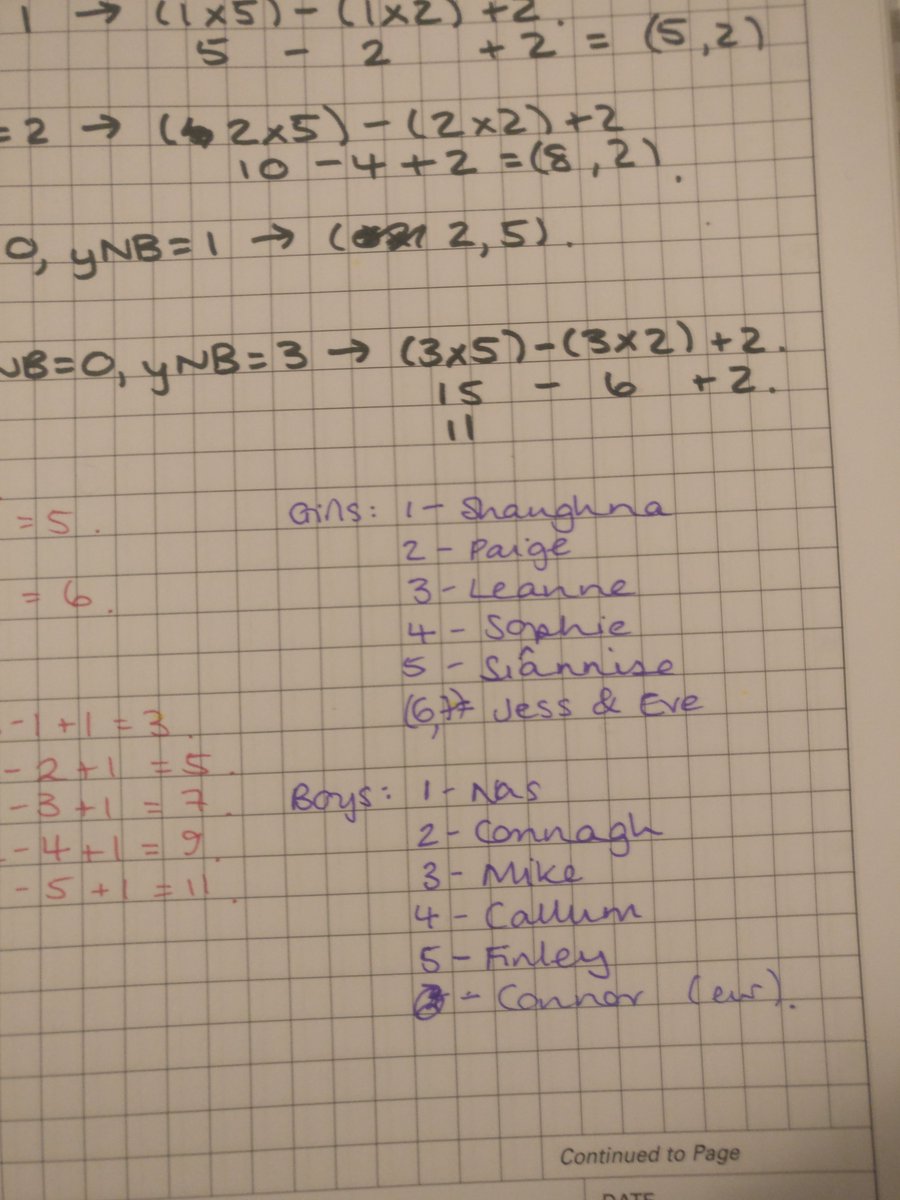 1 → (1x5) - (1x2) +2.
5 - 2 +2 = (5,2)
=2 → (2x5) - (2x2) +2
10 - 4 + 2 = (8,2).
0, yNB=1 → (2,5).
NB=0, yNB=3 → (3x5) - (3x2) +2.
15 - 6 +2.
11
= 5.
= 6.
Girls: 1 - Shaughna
2 - Paige
3 - Leanne
4 - Sophie
5 - Siânnise
(6,7)- Jess & Eve
-1+1 = 3.
-2+1 = 5.
-3+1 = 7.
-4+1 = 9.
-5+1 = 11.
Boys: 1 - Nas
2 - Connagh
3 - Mike
4 - Callum
5 - Finley
- Connor (ew).
Continued to Page
DATE